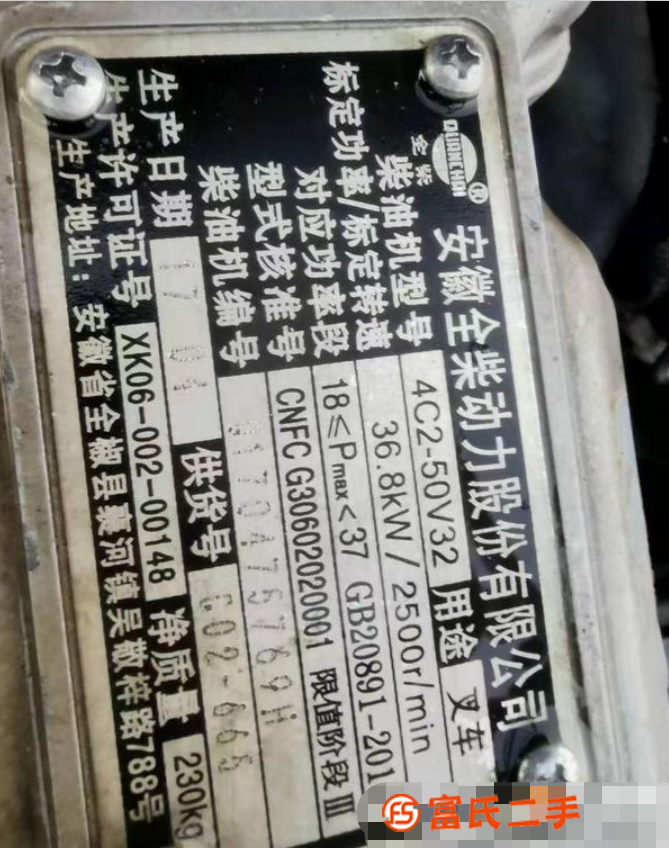 QUANCHAI
全柴
安徽全柴动力股份有限公司
柴油机型号 4C2-50V32 用途 叉车
标定功率/标定转速 36.8kW / 2500r/min
对应功率段 18≤Pmax<37 GB20891-201
型式核准号 CNFC G30602020001 限值阶段 III
柴油机编号
生产日期 17 04 供货号 G02-666
生产许可证号 XK06-002-00148 净质量 230kg
生产地址: 安徽省全椒县襄河镇吴敬梓路788号
富氏二手